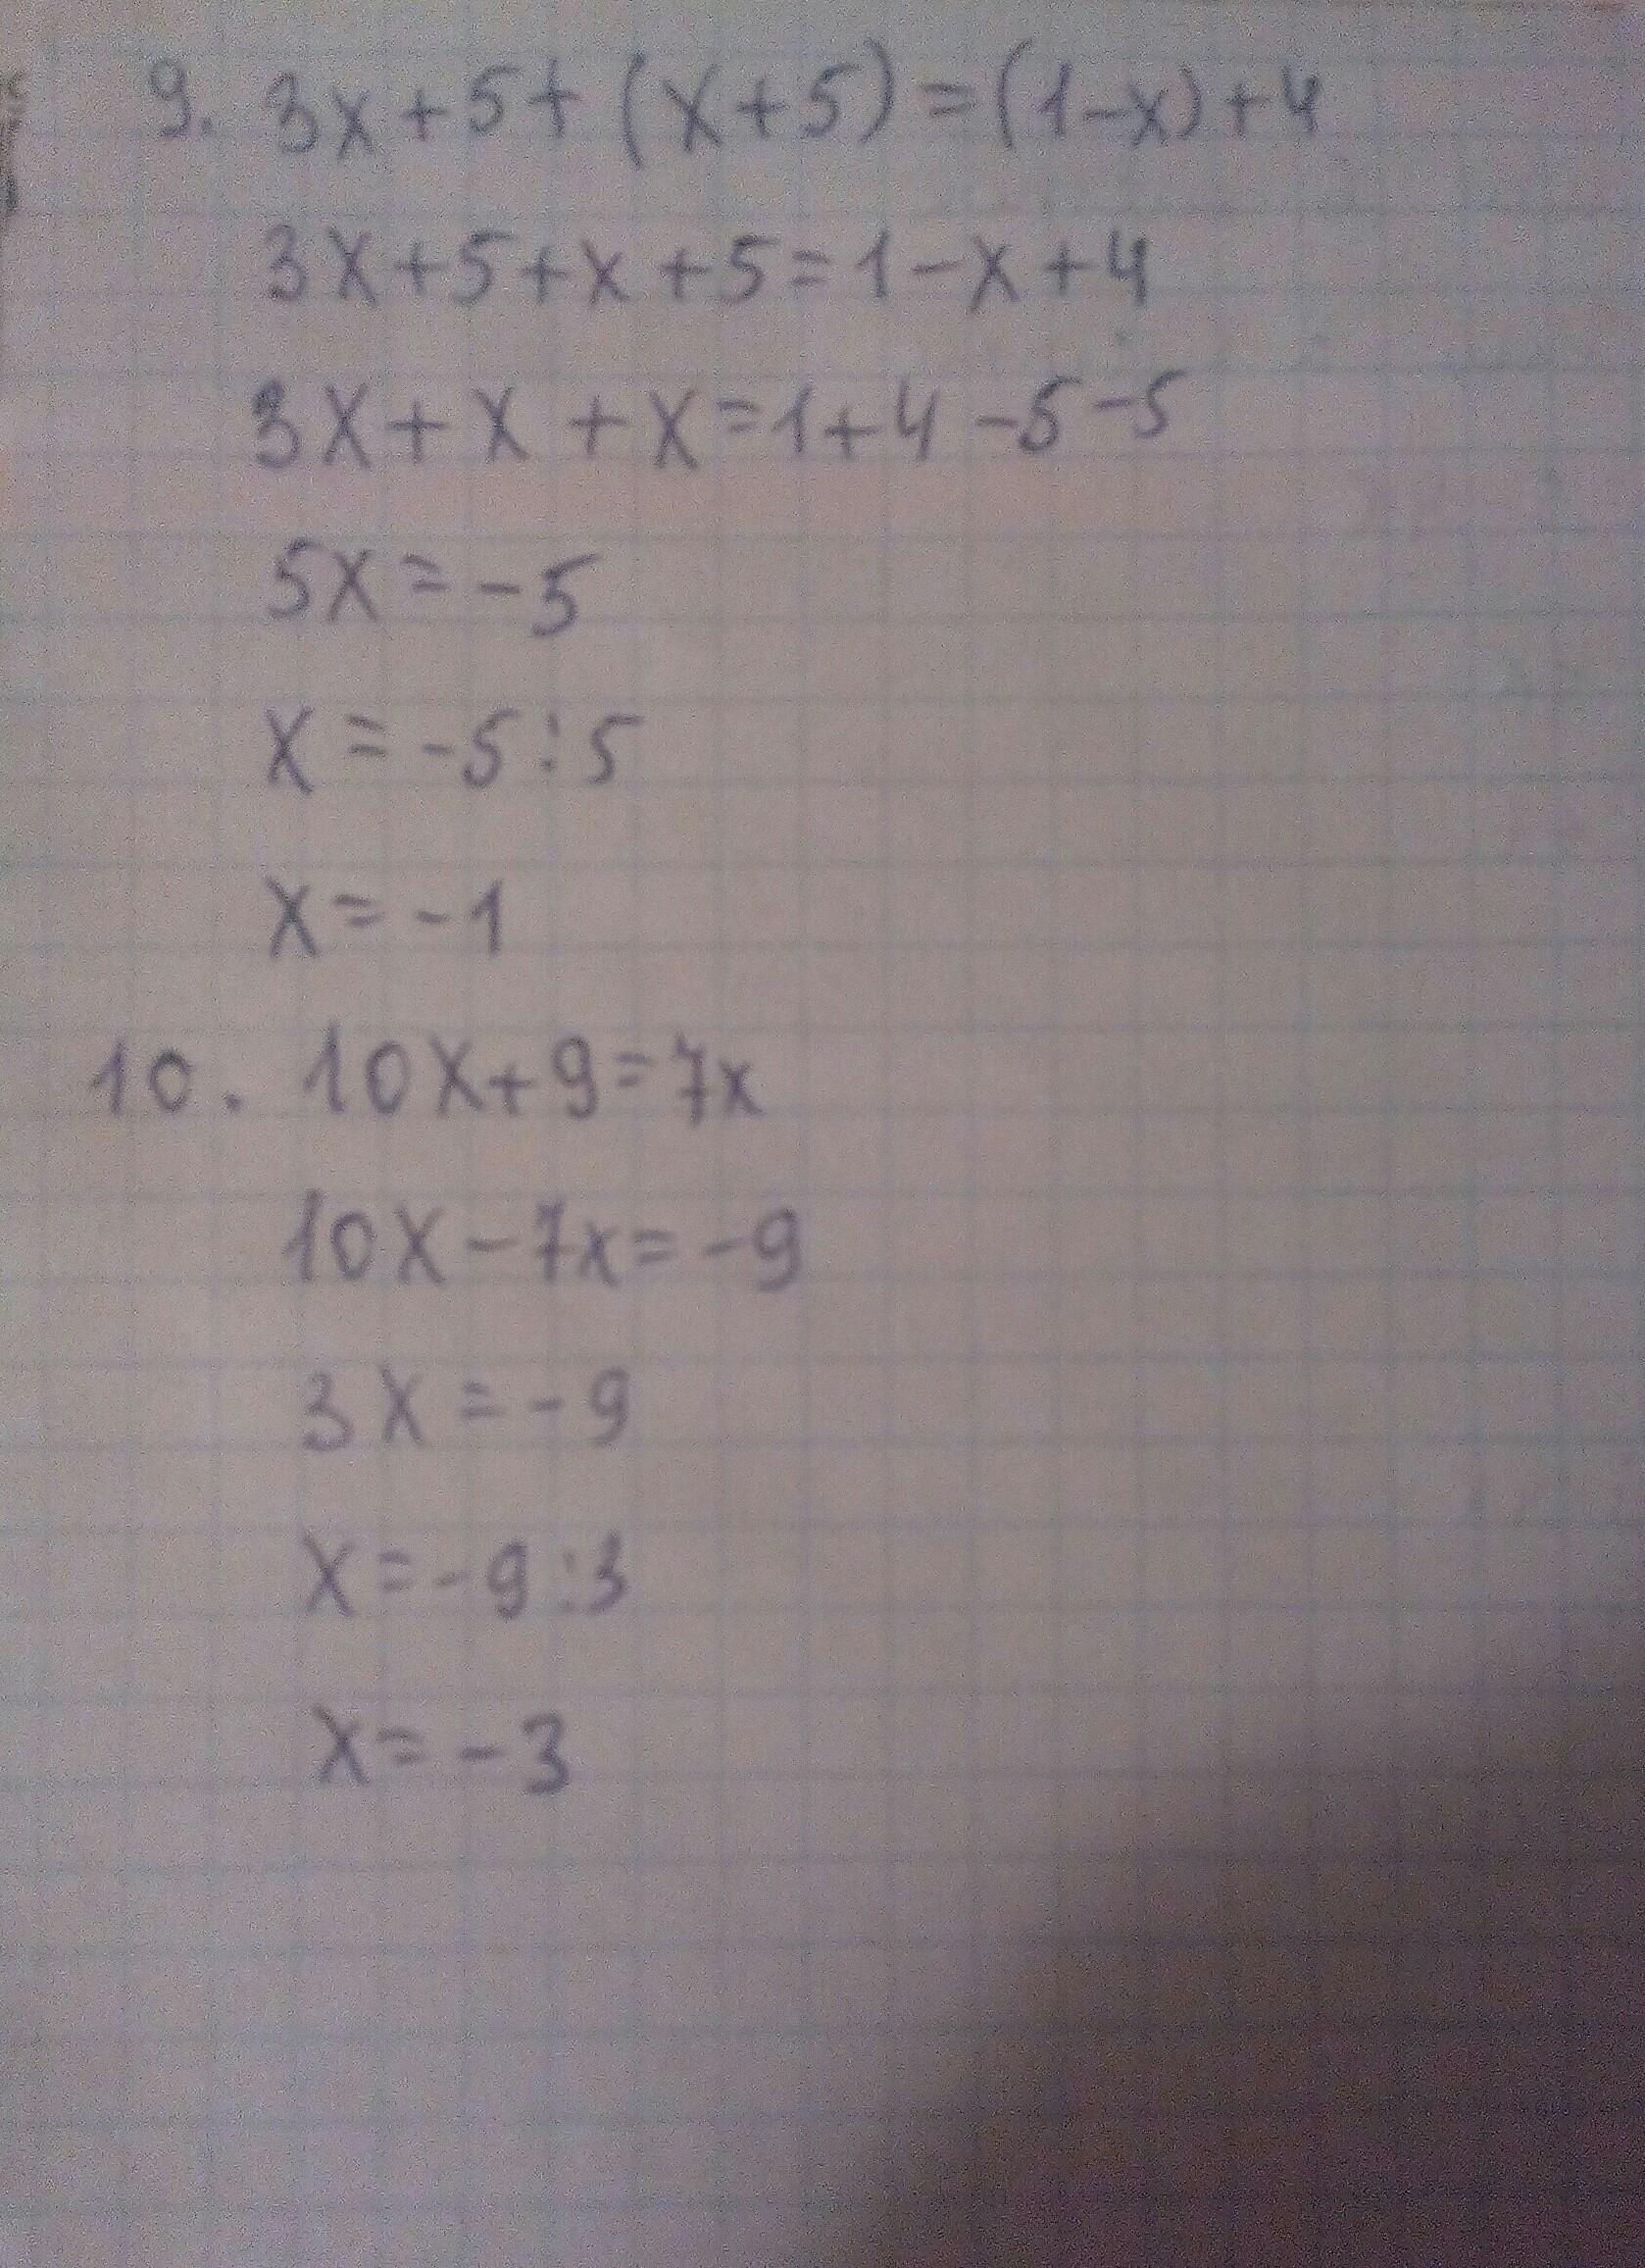 9. 3x+5+(x+5)=(1-x)+4
3x+5+x+5=1-x+4
3x+x+x=1+4-5-5
5x=-5
x=-5:5
x=-1
10. 10x+9=7x
10x-7x=-9
3x=-9
x=-9:3
x=-3